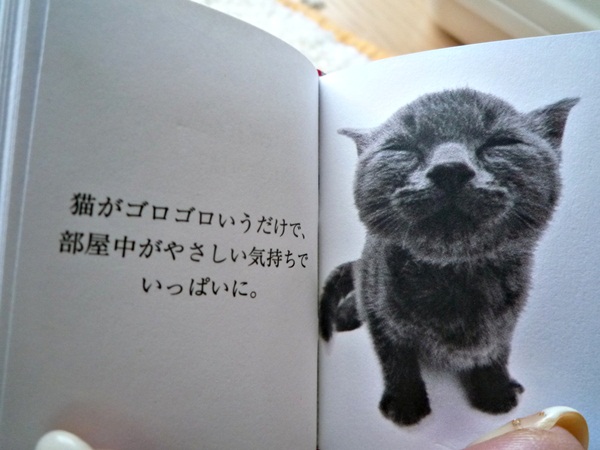 猫がゴロゴロいうだけで、
部屋中がやさしい気持ちで
いっぱいに。